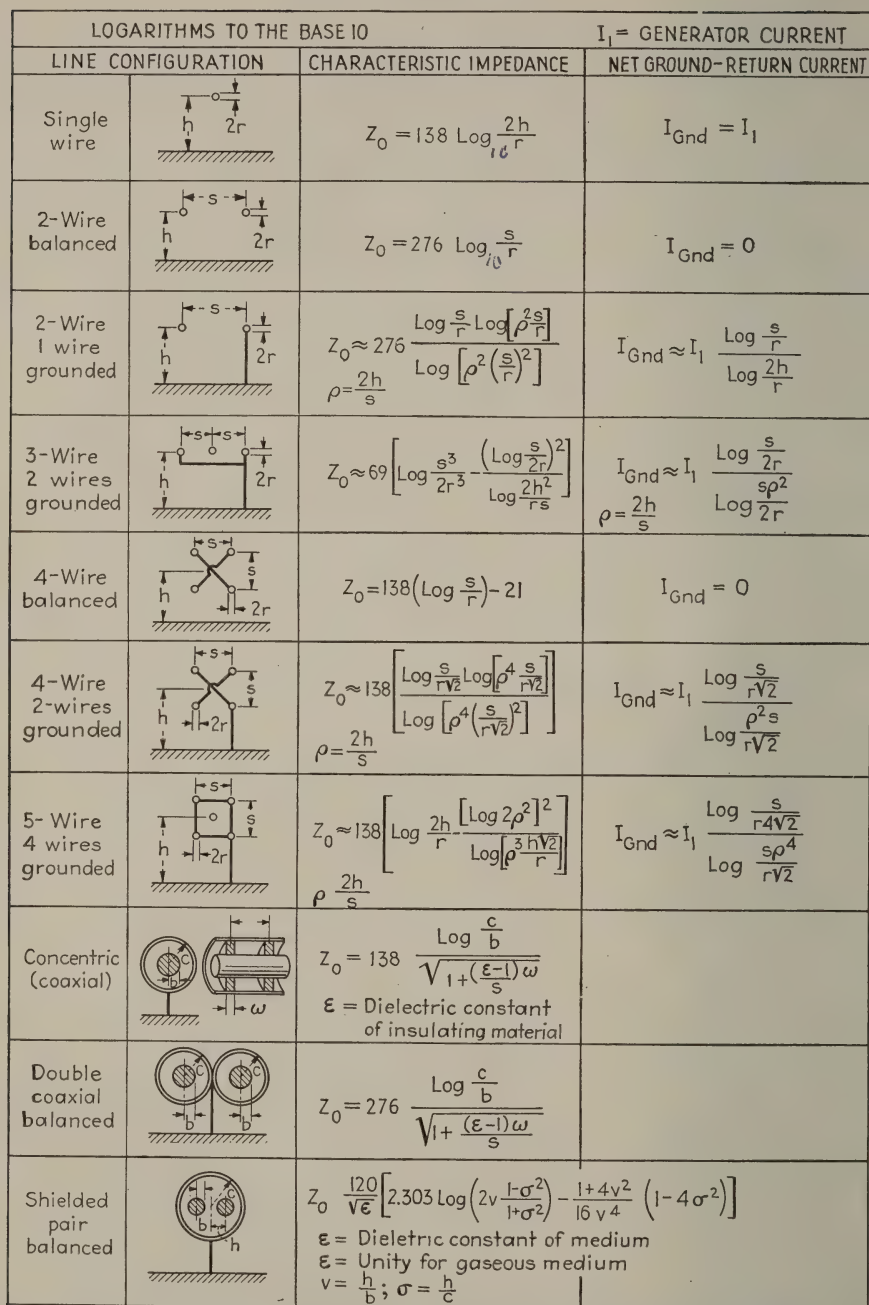 LOGARITHMS TO THE BASE 10 I₁ = GENERATOR CURRENT
LINE CONFIGURATION CHARACTERISTIC IMPEDANCE NET GROUND-RETURN CURRENT
Single wire h 2r Z₀ = 138 Log₁₀ 2h/r I_Gnd = I₁
2-Wire balanced s h 2r Z₀ = 276 Log₁₀ s/r I_Gnd = 0
2-Wire 1 wire grounded s h 2r Z₀ ≈ 276 (Log s/r Log[ρ² s/r]) / (Log [ρ² (s/r)²]) ρ = 2h/s I_Gnd ≈ I₁ (Log s/r) / (Log 2h/r)
3-Wire 2 wires grounded s s h 2r Z₀ ≈ 69 [Log s³/2r³ - (Log s/2r)² / (Log 2h²/rs)] I_Gnd ≈ I₁ (Log s/2r) / (Log sρ²/2r) ρ = 2h/s
4-Wire balanced s s h 2r Z₀ = 138 (Log s/r) - 21 I_Gnd = 0
4-Wire 2-wires grounded s s h 2r Z₀ ≈ 138 [(Log s/r√2 Log[ρ⁴ s/r√2]) / (Log [ρ⁴ (s/r√2)²])] ρ = 2h/s I_Gnd ≈ I₁ (Log s/r√2) / (Log ρ²s/r√2)
5-Wire 4 wires grounded s s h 2r Z₀ ≈ 138 [Log 2h/r - [Log 2ρ²]² / (Log[ρ³ h√2/r])] ρ 2h/s I_Gnd ≈ I₁ (Log s/r4√2) / (Log sρ⁴/r√2)
Concentric (coaxial) c b ω Z₀ = 138 (Log c/b) / √(1 + ((ε-1)/s) ω)
ε = Dielectric constant
of insulating material
Double coaxial balanced c c b b Z₀ = 276 (Log c/b) / √(1 + (ε-1)ω/s)
Shielded pair balanced c b h Z₀ 120/√ε [2.303 Log (2v (1-σ²)/(1+σ²)) - (1+4v²)/(16v⁴) (1-4σ²)]
ε = Dieletric constant of medium
ε = Unity for gaseous medium
v = h/b ; σ = h/c